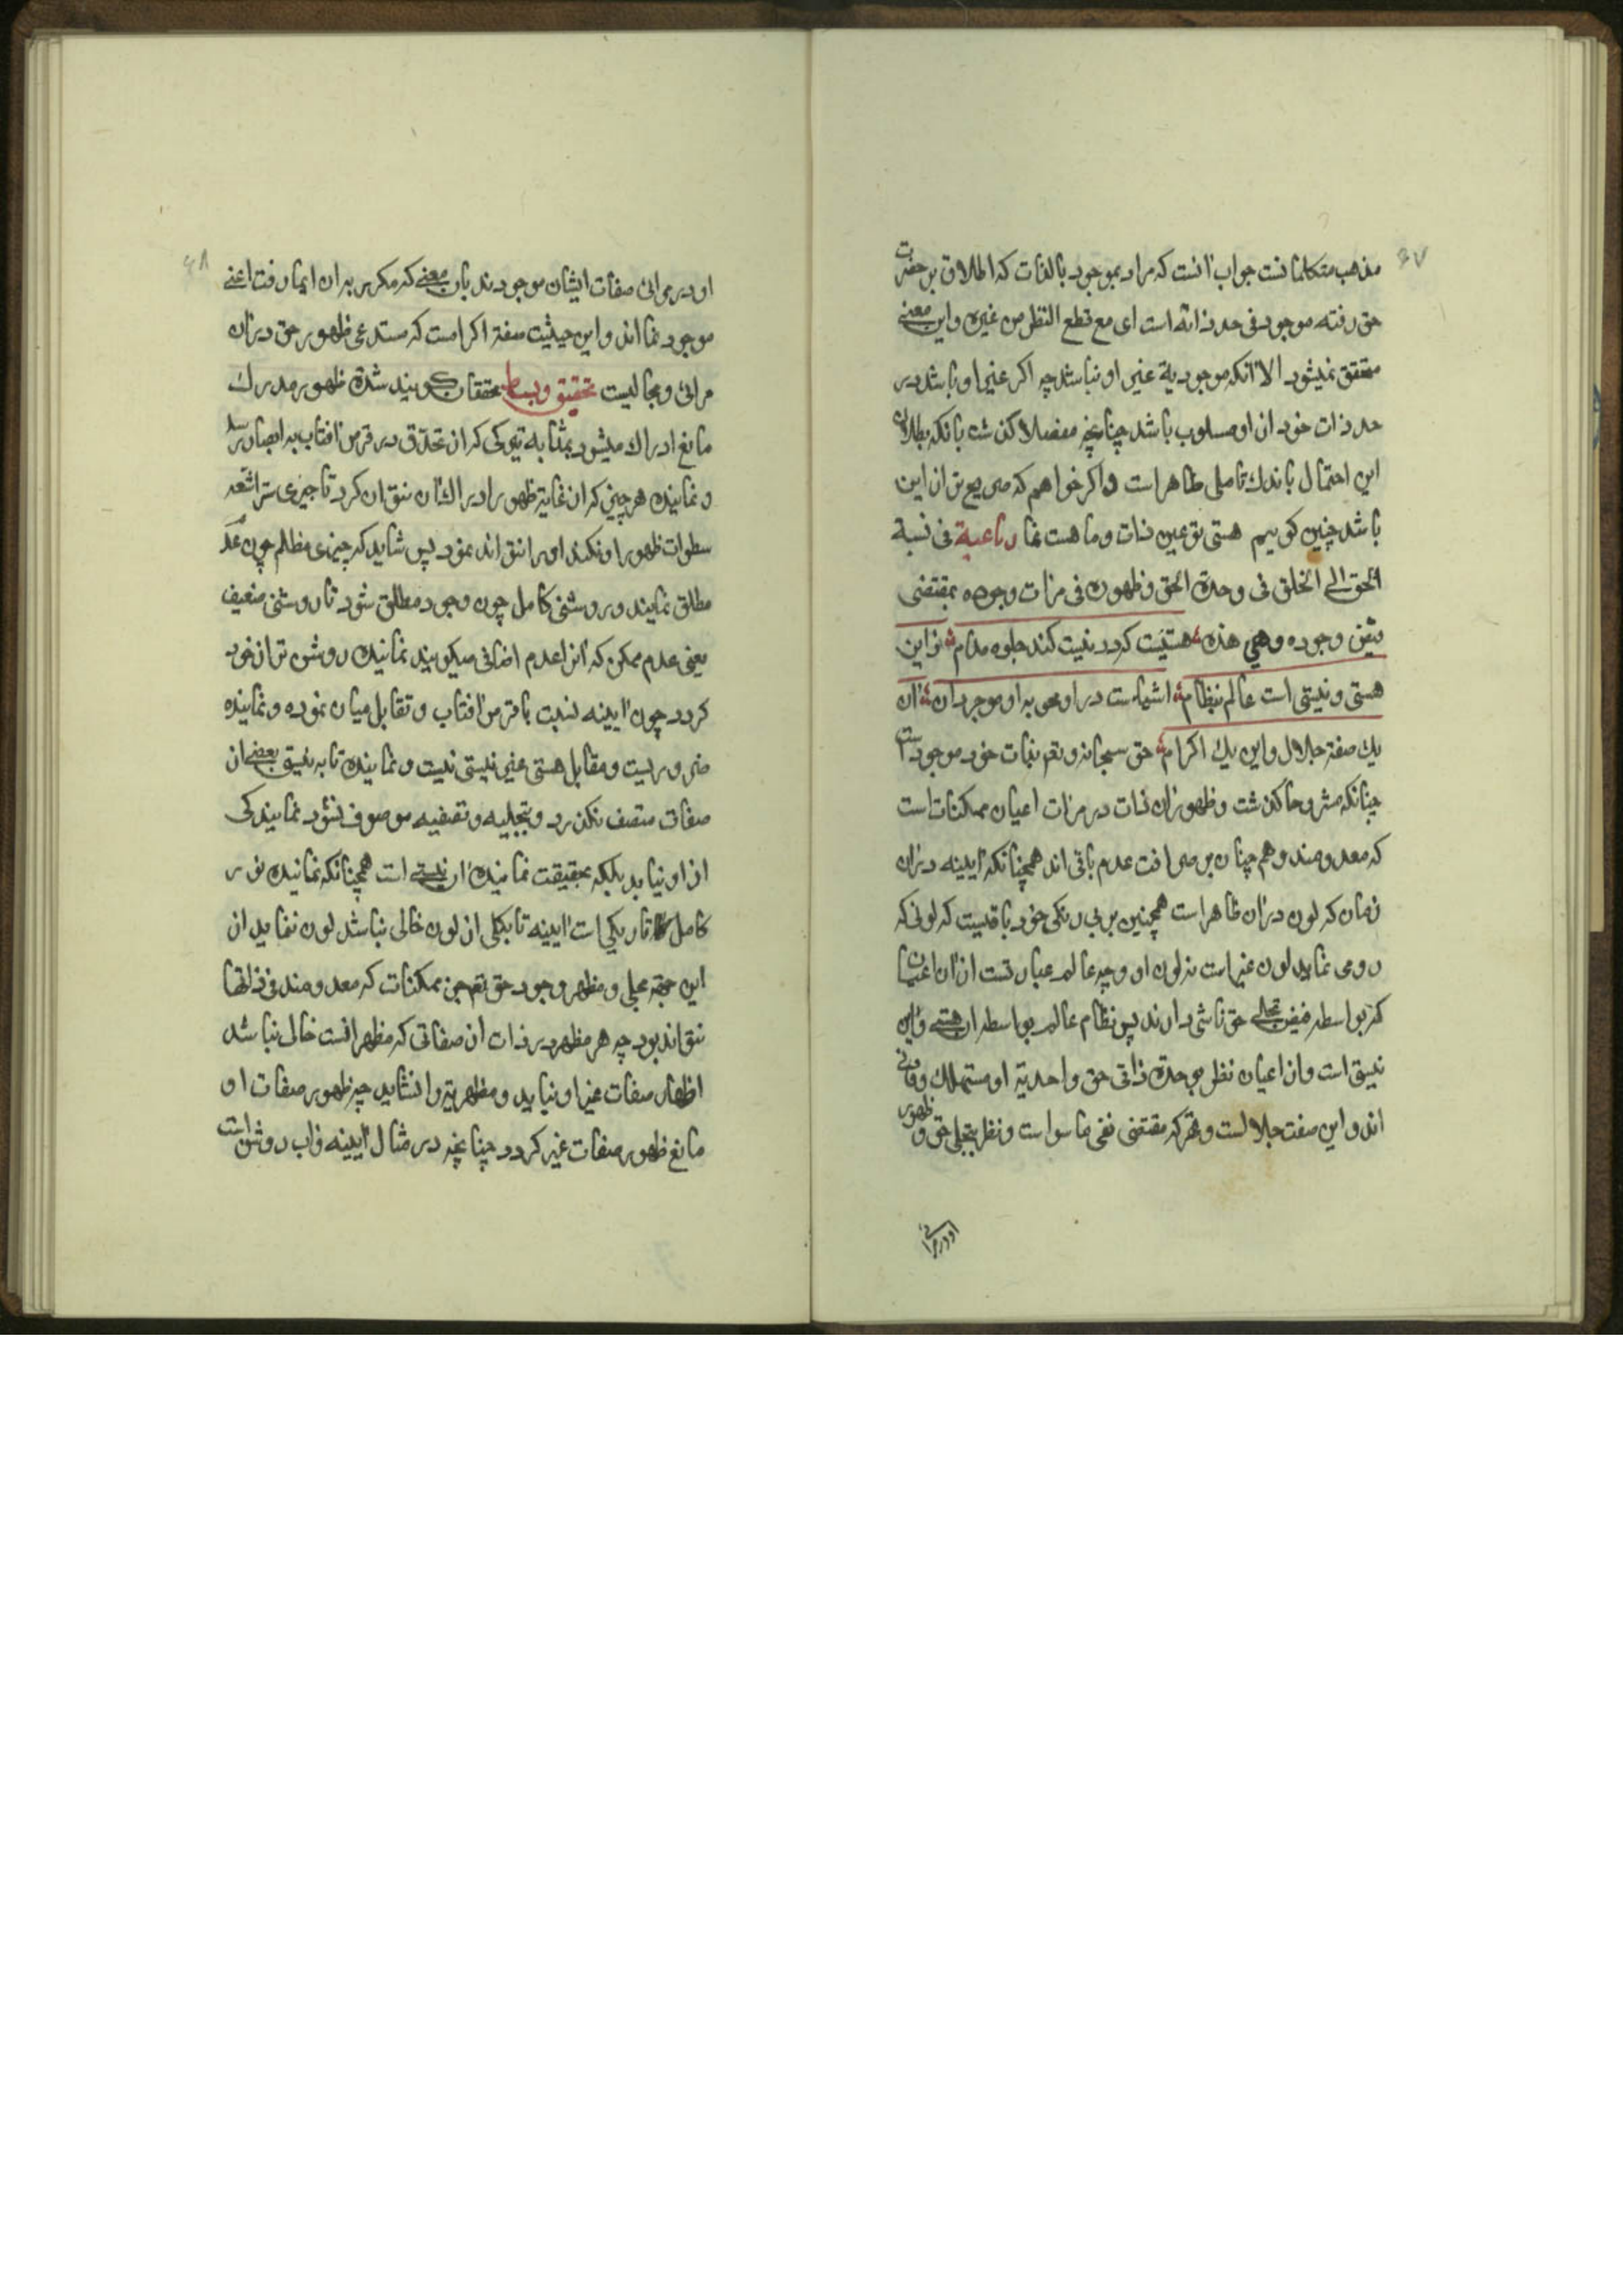 ۶۷
مذهب متکلمانست جواب آنست که مراد بموجود بالذات که اطلاق بر حضرت
حق رفته موجود فی حد ذاته است ای مع قطع النظر من غیره و این معنی
متحقق نمیشود الا آنکه موجودیة عین او نباشد چه اکر غیر او باشد در
حد ذات خود از او مسلوب باشد چنانچه مفصلا کذشت بانکه بطلان
این احتمال باندك تاملی ظاهر است و اکر خواهم که صریح تر از این
باشد چنین کوییم هستی تو عین ذات و ما هست نما رباعیة فی نسبة
الحق الی الخلق فی وحدة الحق و ظهوره فی مرات وجوده بمقتضی
وجوده وهی هذه هستیست کردد نیست کند جلوه مدام زاین
هستی و نیستی است عالم بنظام اشیاست در او محو به او موجودان آن
یك صفة جلال و این یك اکرام حق سبحانه و تعم بذات خود موجود است
چنانکه مشروحا کذشت و ظهور آن ذات در مرات اعیان ممکنات است
که معدومند و هم چنان بر صرافت عدم باقی اند همچنانکه آیینه در آن
زمان که لون در آن ظاهر است همچنین بر بی رنکی خود باقیست که لونی که
رو می نماید لون غیر است نه لون او و چه عالم عبارتست از آن اعیان
که بواسطه فیض تجلی حق ناشی دارند پس نظام عالم بواسطه آن هستی و این
نیستی است و آن اعیان نظر بوحدة ذاتی حق و احدیة او مستهلك و فانی
اند و این صفت جلالست و قهر که مقتضی نفی ما سواست و نظر بتجلی حق و ظهور
او در مرائی
۶۸
او در مرائی صفات ایشان موجودند بان معنی که مکرر به ان ایما رفت اعنی
موجود نما اند و این حیثیت صفة اکرامست که مستدعی ظهور حق در آن
مرائی و مجالیست تحقیق و بسط محققان کویند شدة ظهور مدرك
مانع ادراك میشود بمثابه تیرکی که از تحدق در قرص آفتاب به ابصار رسد
و نماینده هر چیزی که از غایة ظهور ادراك آن نتوان کرد تا چیزی ستر اشعه
سطوات ظهور او نکند او را نتواند نمود پس شاید که چیزی مظلم چون عدم
مطلق نماینده روشنی کامل چون وجود مطلق شود تا روشنی ضعیف
یعنی عدم ممکن که آنرا عدم اضافی میکویند نماینده روشن تر از خود
کردد چون آیینه نسبت با قرص آفتاب و تقابل میان نموده و نماینده
ضروریست و مقابل هستی غیر نیستی نیست و نماینده تا به نیستی بعضی از
صفات متصف نکردد و بتجلیه و تصفیه موصوف نشود نمایندکی
از او نیاید بلکه بحقیقت نماینده آن نیستی است همچنانکه نماینده نور
کامل تاریکی است آیینه تا بکلی از لون خالی نباشد لون ننماید از
این جهة مجلی و مظهر وجود حق تعم جز ممکنات که معدومند فی ذاتها
نتواند بود چه هر مظهر در ذات از صفاتی که مظهر آنست خالی نباشد
اظهار صفات غیر او نیاید و مظهریة را نشاید چه ظهور صفات او
مانع ظهور صفات غیر کردد چنانچه در مثال آیینه و آب روشن است